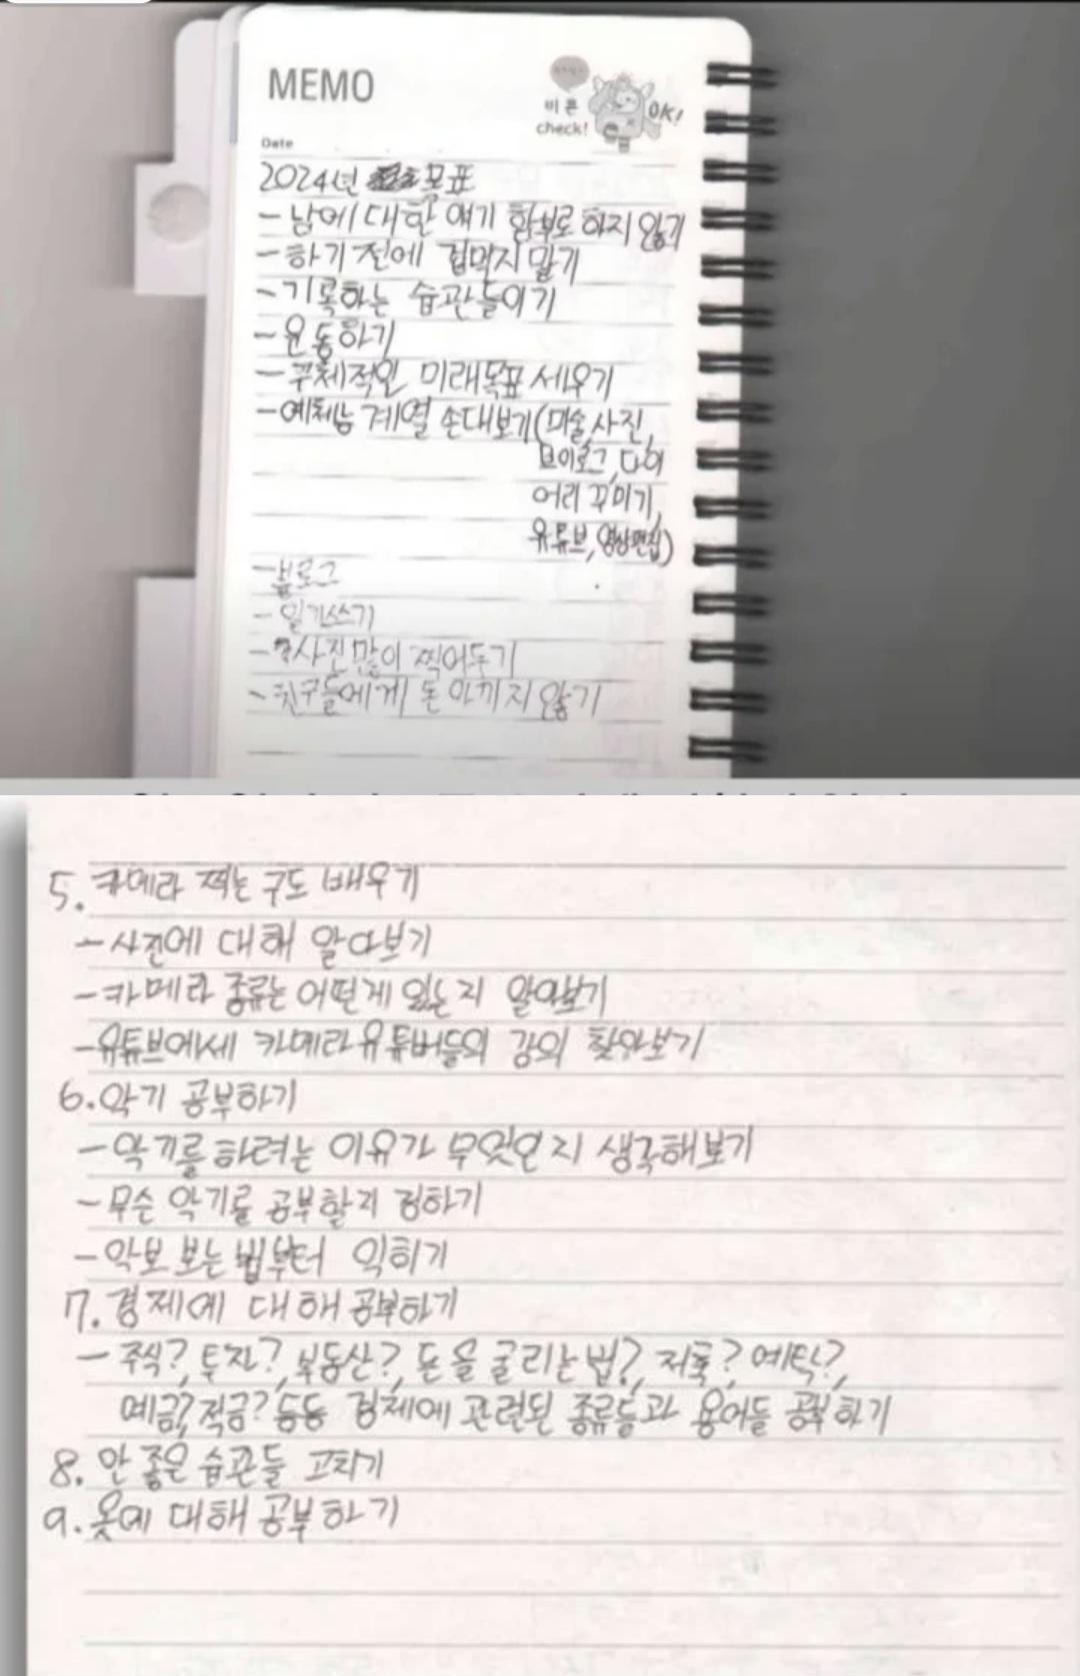 MEMO
비 폰
check!
OK!
Date
2024년 목표
- 남에 대한 얘기 함부로 하지 않기
- 하기 전에 겁먹지 말기
- 기록하는 습관들이기
- 운동하기
- 구체적인 미래목표 세우기
- 예체능 계열 손대보기(미술, 사진,
브이로그, 다이
어리 꾸미기,
유튜브, 영상편집)
- 블로그
- 일기쓰기
- 사진 많이 찍어두기
- 친구들에게 돈 아끼지 않기
5. 카메라 찍는 구도 배우기
- 사진에 대해 알아보기
- 카메라 종류는 어떤게 있는지 알아보기
- 유튜브에세 카메라 유튜버들의 강의 찾아보기
6. 악기 공부하기
- 악기를 하려는 이유가 무엇인지 생각해보기
- 무슨 악기를 공부할지 정하기
- 악보 보는 법부터 익히기
7. 경제에 대해 공부하기
- 주식?, 투자?, 부동산?, 돈을 굴리는 법?, 저축? 예탁?,
예금? 적금? 등등 경제에 관련된 종류들과 용어들 공부하기
8. 안 좋은 습관들 고치기
9. 옷에 대해 공부하기